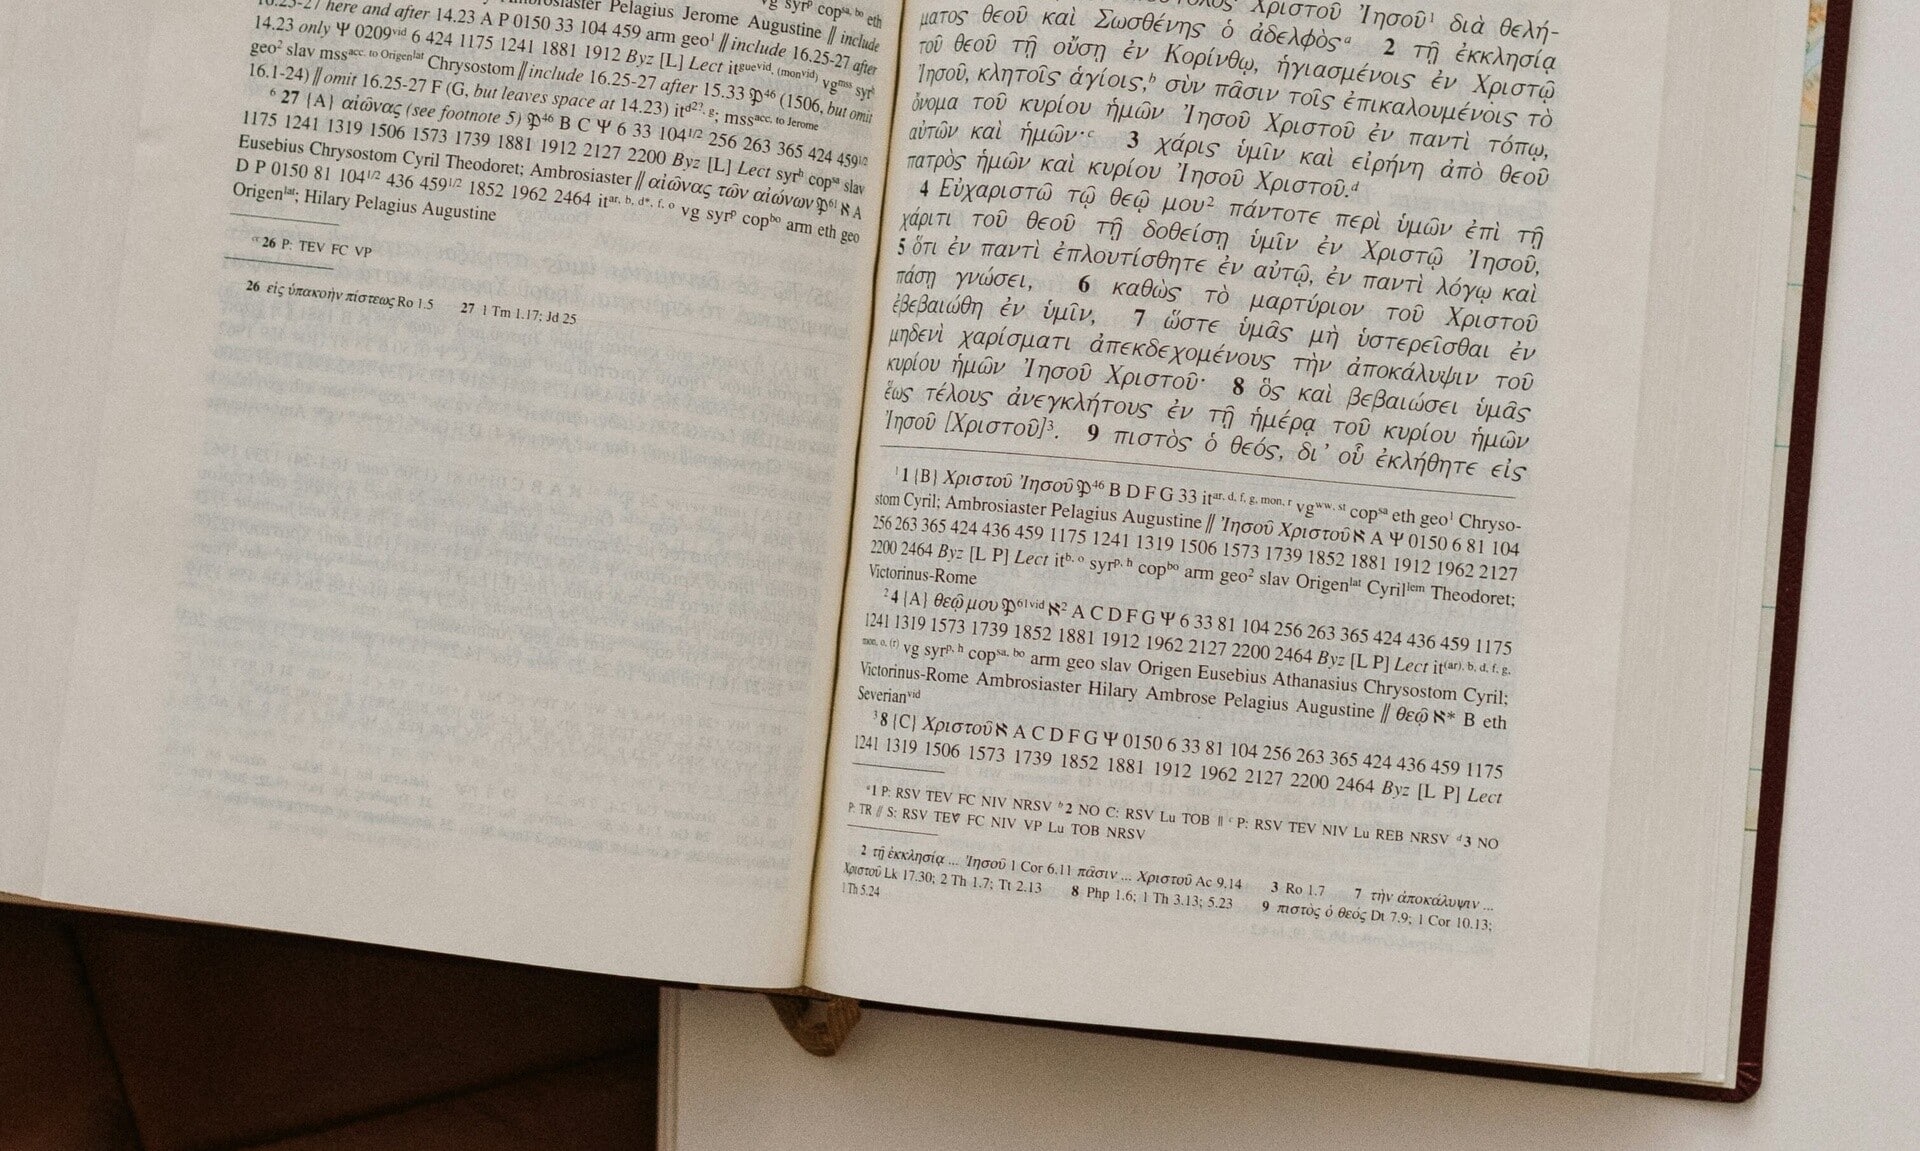 16.25-27 here and after 14.23 A P 0150 33 104 459 arm geo¹ // include 16.25-27 after
14.23 only Ψ 0209ᵛⁱᵈ 6 424 1175 1241 1881 1912 Byz [L] Lect itᵍᵘᵉᵛⁱᵈ, ⁽ᵐᵒⁿᵛⁱᵈ⁾ vgᵐˢˢ syrʰ
geo² slav mssᵃᶜᶜ· ᵗᵒ ᴼʳⁱᵍᵉⁿˡᵃᵗ Chrysostom // include 16.25-27 after 15.33 𝔓⁴⁶ (1506, but omit
16.1-24) // omit 16.25-27 F (G, but leaves space at 14.23) itᵈ²ˀ, ᵍ; mssᵃᶜᶜ· ᵗᵒ ᴶᵉʳᵒᵐᵉ
⁶ 27 {A} αἰῶνας (see footnote 5) 𝔓⁴⁶ B C Ψ 6 33 104¹ᐟ² 256 263 365 424 459¹ᐟ²
1175 1241 1319 1506 1573 1739 1881 1912 2127 2200 Byz [L] Lect syrʰ copˢᵃ slav
Eusebius Chrysostom Cyril Theodoret; Ambrosiaster // αἰῶνας τῶν αἰώνων 𝔓⁶¹ ℵ A
D P 0150 81 104¹ᐟ² 436 459¹ᐟ² 1852 1962 2464 itᵃʳ, ᵇ, ᵈ*, ᶠ, ᵒ vg syrᵖ copᵇᵒ arm eth geo
Origenˡᵃᵗ; Hilary Pelagius Augustine
ᵃ 26 P: TEV FC VP
26 εἰς ὑπακοὴν πίστεως Ro 1.5 27 1 Tm 1.17; Jd 25
Χριστοῦ Ἰησοῦ¹ διὰ θελή-
ματος θεοῦ καὶ Σωσθένης ὁ ἀδελφὸςᵃ 2 τῇ ἐκκλησίᾳ
τοῦ θεοῦ τῇ οὔσῃ ἐν Κορίνθῳ, ἡγιασμένοις ἐν Χριστῷ
Ἰησοῦ, κλητοῖς ἁγίοις,ᵇ σὺν πᾶσιν τοῖς ἐπικαλουμένοις τὸ
ὄνομα τοῦ κυρίου ἡμῶν Ἰησοῦ Χριστοῦ ἐν παντὶ τόπῳ,
αὐτῶν καὶ ἡμῶν·ᶜ 3 χάρις ὑμῖν καὶ εἰρήνη ἀπὸ θεοῦ
πατρὸς ἡμῶν καὶ κυρίου Ἰησοῦ Χριστοῦ.ᵈ
4 Εὐχαριστῶ τῷ θεῷ μου² πάντοτε περὶ ὑμῶν ἐπὶ τῇ
χάριτι τοῦ θεοῦ τῇ δοθείσῃ ὑμῖν ἐν Χριστῷ Ἰησοῦ,
5 ὅτι ἐν παντὶ ἐπλουτίσθητε ἐν αὐτῷ, ἐν παντὶ λόγῳ καὶ
πάσῃ γνώσει, 6 καθὼς τὸ μαρτύριον τοῦ Χριστοῦ
ἐβεβαιώθη ἐν ὑμῖν, 7 ὥστε ὑμᾶς μὴ ὑστερεῖσθαι ἐν
μηδενὶ χαρίσματι ἀπεκδεχομένους τὴν ἀποκάλυψιν τοῦ
κυρίου ἡμῶν Ἰησοῦ Χριστοῦ· 8 ὃς καὶ βεβαιώσει ὑμᾶς
ἕως τέλους ἀνεγκλήτους ἐν τῇ ἡμέρᾳ τοῦ κυρίου ἡμῶν
Ἰησοῦ [Χριστοῦ]³. 9 πιστὸς ὁ θεός, δι᾽ οὗ ἐκλήθητε εἰς
¹ 1 {B} Χριστοῦ Ἰησοῦ 𝔓⁴⁶ B D F G 33 itᵃʳ, ᵈ, ᶠ, ᵍ, ᵐᵒⁿ, ʳ vgʷʷ, ˢᵗ copˢᵃ eth geo¹ Chryso-
stom Cyril; Ambrosiaster Pelagius Augustine // Ἰησοῦ Χριστοῦ ℵ A Ψ 0150 6 81 104
256 263 365 424 436 459 1175 1241 1319 1506 1573 1739 1852 1881 1912 1962 2127
2200 2464 Byz [L P] Lect itᵇ, ᵒ syrᵖ, ʰ copᵇᵒ arm geo² slav Origenˡᵃᵗ Cyrilˡᵉᵐ Theodoret;
Victorinus-Rome
² 4 {A} θεῷ μου 𝔓⁶¹ᵛⁱᵈ ℵ² A C D F G Ψ 6 33 81 104 256 263 365 424 436 459 1175
1241 1319 1573 1739 1852 1881 1912 1962 2127 2200 2464 Byz [L P] Lect it⁽ᵃʳ⁾, ᵇ, ᵈ, ᶠ, ᵍ,
ᵐᵒⁿ, ᵒ, ⁽ʳ⁾ vg syrᵖ, ʰ copˢᵃ, ᵇᵒ arm geo slav Origen Eusebius Athanasius Chrysostom Cyril;
Victorinus-Rome Ambrosiaster Hilary Ambrose Pelagius Augustine // θεῷ ℵ* B eth
Severianᵛⁱᵈ
³ 8 {C} Χριστοῦ ℵ A C D F G Ψ 0150 6 33 81 104 256 263 365 424 436 459 1175
1241 1319 1506 1573 1739 1852 1881 1912 1962 2127 2200 2464 Byz [L P] Lect
ᵃ 1 P: RSV TEV FC NIV NRSV ᵇ 2 NO C: RSV Lu TOB ‖ ᶜ P: RSV TEV NIV Lu REB NRSV ᵈ 3 NO
P: TR // S: RSV TEV FC NIV VP Lu TOB NRSV
2 τῇ ἐκκλησίᾳ ... Ἰησοῦ 1 Cor 6.11 πᾶσιν ... Χριστοῦ Ac 9.14 3 Ro 1.7 7 τὴν ἀποκάλυψιν ...
Χριστοῦ Lk 17.30; 2 Th 1.7; Tt 2.13 8 Php 1.6; 1 Th 3.13; 5.23 9 πιστὸς ὁ θεός Dt 7.9; 1 Cor 10.13;
1 Th 5.24